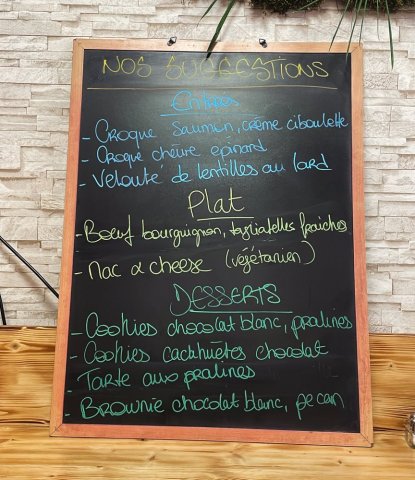 NOS SUGGESTIONS
Entrées
- Croque Saumon, crème ciboulette
- Croque chèvre epinard
- Velouté de lentilles au lard
Plat
- Bœuf bourguignon, tagliatelles fraiches
- Mac & cheese (végétarien)
DESSERTS
- Cookies chocolat blanc, pralines
- Cookies cacahuètes chocolat
- Tarte aux pralines
- Brownie chocolat blanc, pecan